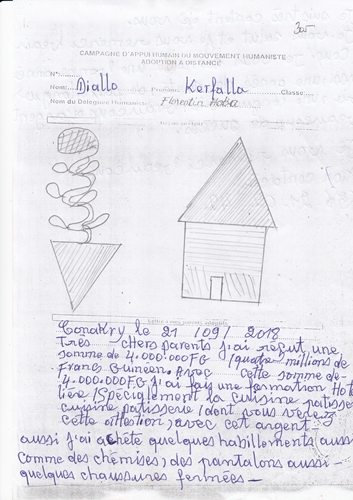 305
CAMPAGNE D'APPUI HUMAIN DU MOUVEMENT HUMANISTE
ADOPTION A DISTANCE
N°:
Nom: Diallo Prénoms: Kerfalla Classe:
Nom du Délégué Humaniste: Florentin
Conakry le 21 /09/ 2018
Tres chers parents j'ai reçut une
somme de 4.000.000FG (quatre millions de
Franc Guineen. Avec cette somme de
4.000.000FG j'ai fais une formation Hote
lière / Specialement la cuisine patisse
cuisine patisserie / dont vous verez
cette attention, avec cet argent
aussi j'ai achète quelques habillements aussi
comme des chemises, des pantalons aussi
quelques chaussures fermées